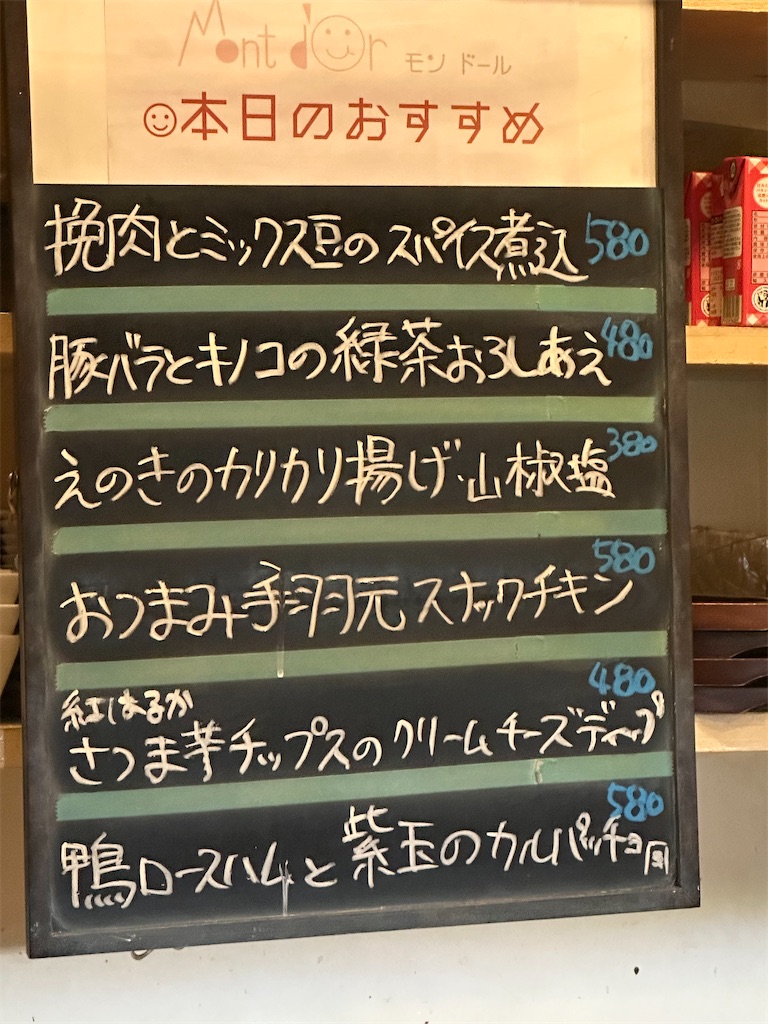 Mont d'Or モンドール
本日のおすすめ
挽肉とミックス豆のスパイス煮込 580
豚バラとキノコの緑茶おろしあえ 480
えのきのカリカリ揚げ・山椒塩 380
おつまみ手羽元スナックチキン 580
紅はるか
さつま芋チップスのクリームチーズディップ 480
鴨ロースハムと紫玉のカルパッチョ風 580